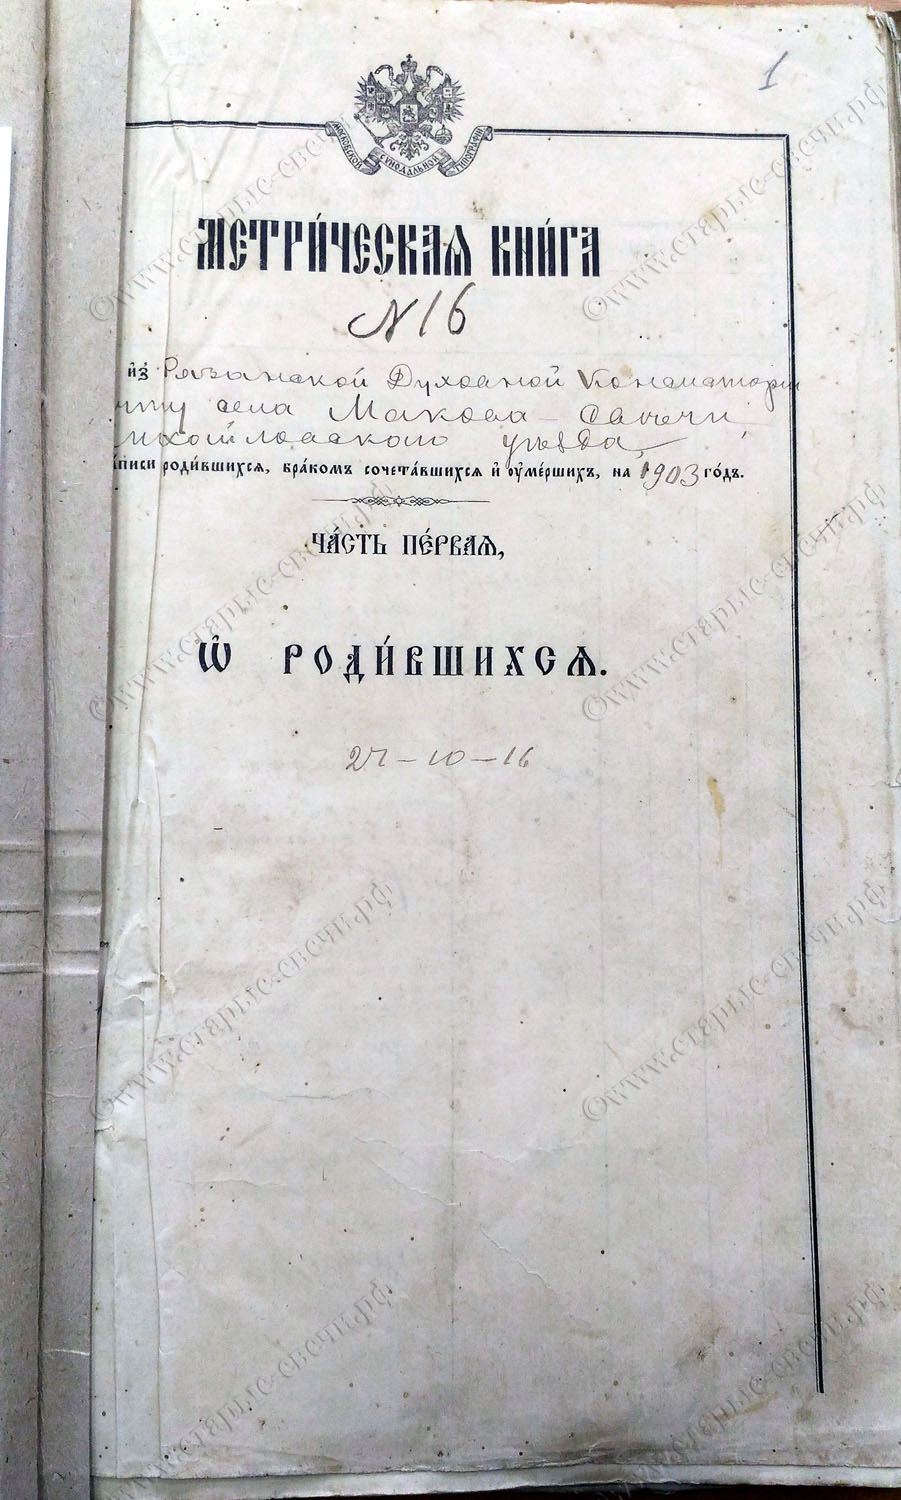 1
МОСКОВСКОЙ СѴНОДАЛЬНОЙ ТИПОГРАФІИ
МЕТРИ́ЧЕСКАЯ КНИ́ГА
N 16
и҆з̾ Рязанской Духовной Консисторіи
села Макова
Михайловскаго уѣзда
роди́вшихся, бра́комъ сочета́вшихся и҆ оу҆ме́ршихъ, на 1903 го́дъ.
ЧА́СТЬ ПЕ́РВАЯ,
Ѡ҆ РОДИ́ВШИХСЯ.
27–10–16
©www.старые-свечи.рф